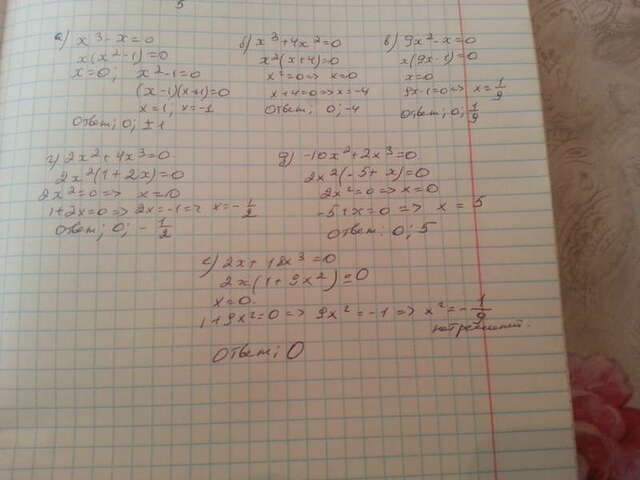 5
а) x³-x=0
x(x²-1)=0
x=0; x²-1=0
(x-1)(x+1)=0
x=1, x=-1
Ответ; 0; ±1
б) x³+4x²=0
x²(x+4)=0
x²=0=> x=0
x+4=0=>x=-4
Ответ; 0; -4
в) 9x²-x=0
x(9x-1)=0
x=0
9x-1=0=> x=1/9
Ответ; 0; 1/9
г) 2x²+4x³=0
2x²(1+2x)=0
2x²=0=> x=0
1+2x=0=> 2x=-1=> x=-1/2
Ответ; 0; -1/2
д) -10x²+2x³=0
2x²(-5+x)=0
2x²=0=>x=0
-5+x=0 => x = 5
Ответ: 0; 5
е) 2x+18x³=0
2x(1+9x²)=0
x=0.
1+9x²=0=> 9x²=-1=> x²=-1/9
нет решений.
Ответ; 0